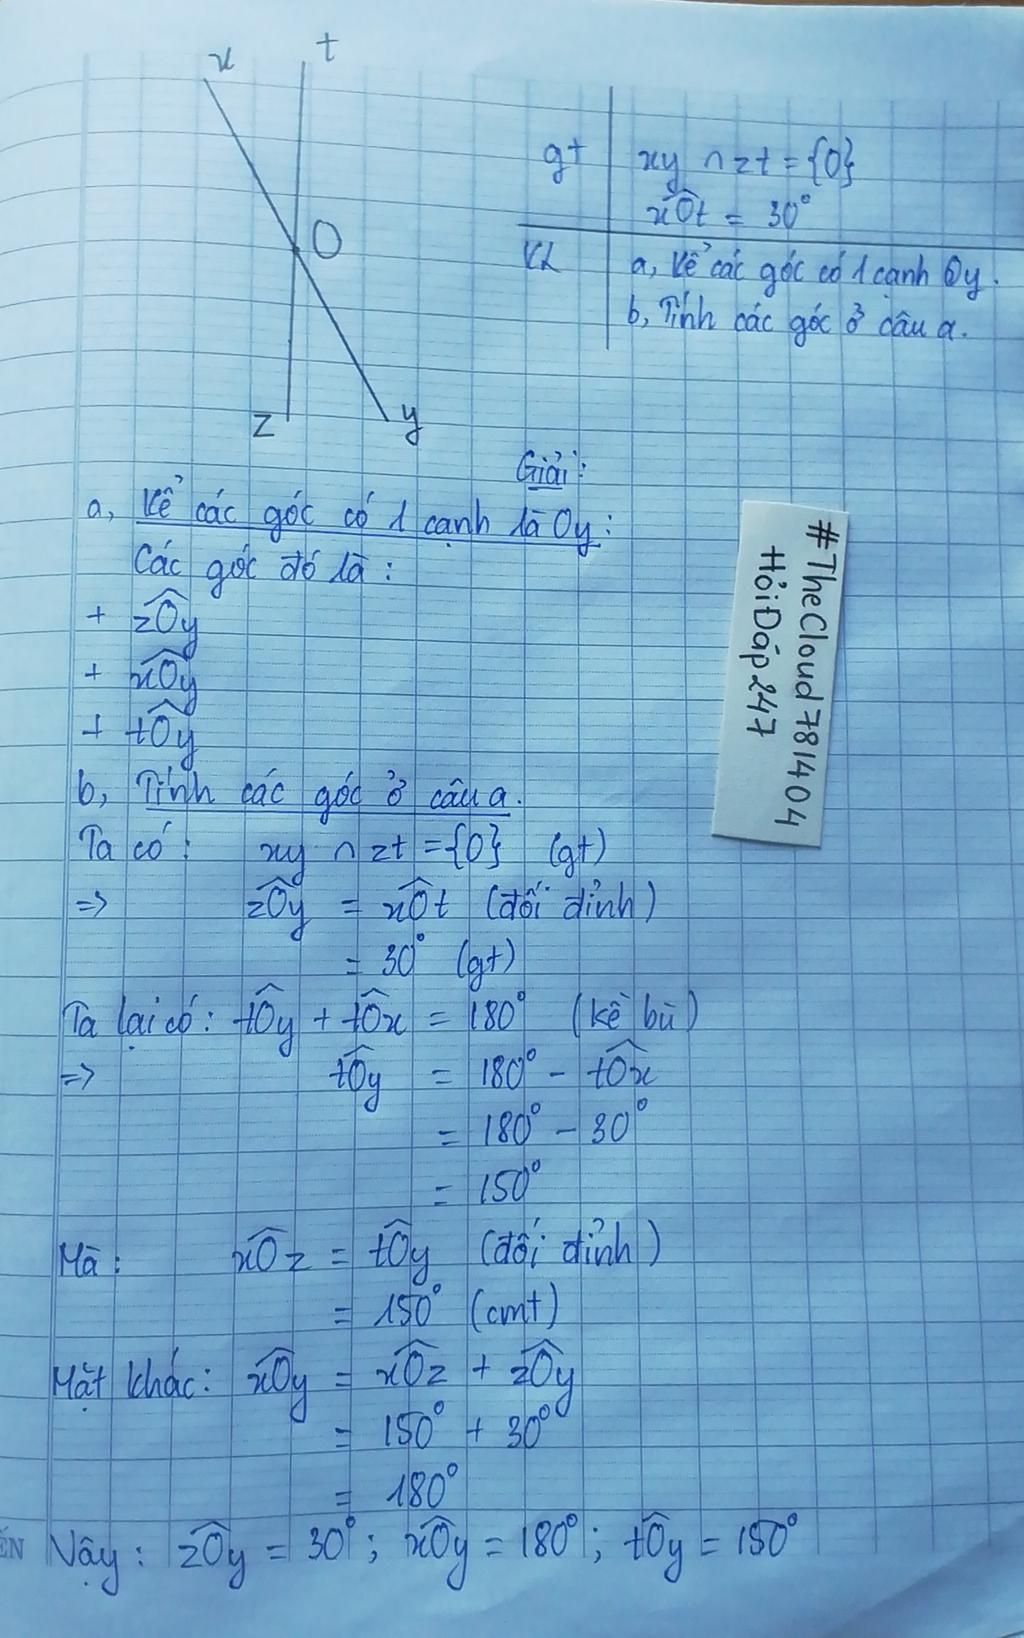 x
t
O
z
y
gt
xy ∩ zt = {O}
xOt = 30°
KL
a, Kể các góc có 1 cạnh Oy.
b, Tính các góc ở câu a.
Giải:
a, Kể các góc có 1 cạnh là Oy:
Các góc đó là:
+ zOy
+ xOy
+ tOy
#TheCloud781404
HỏiĐáp247
b, Tính các góc ở câu a.
Ta có: xy ∩ zt = {O} (gt)
=> zOy = xOt (đối đỉnh)
= 30° (gt)
Ta lại có: tOy + tOx = 180° (kề bù)
=> tOy = 180° - tOx
= 180° - 30°
= 150°
Mà: xOz = tOy (đối đỉnh)
= 150° (cmt)
Mặt khác: xOy = xOz + zOy
= 150° + 30°
= 180°
Vậy: zOy = 30°; xOy = 180°; tOy = 150°